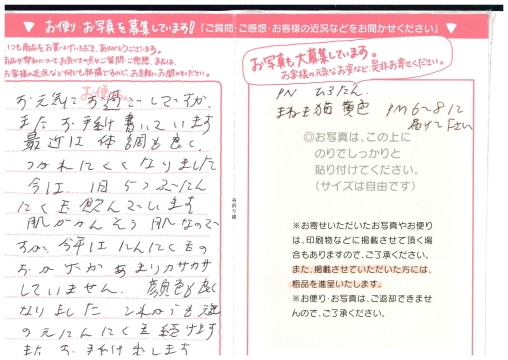 ▼ お便り・お写真を募集しています!! 「ご質問・ご感想・お客様の近況などをお聞かせください」 ▼
いつも商品をお買い上げいただき、ありがとうございます。
お客様の近況など何でも結構ですので、お気軽にお聞かせください。
お便り
お元気にお過ごしですか
またお手紙書いています
最近は体調も良く
つかれにくくなりました
今は1日5つぶにん
にく玉飲んでいます
肌がかんそう肌なので
すが今年はにんにく玉の
おかげかあまりカサカサ
していません。顔色も良く
なりました これからも元気
の元にんにく玉続けます
またお手紙出します
お写真も大募集しています。
お客様の元気なお姿など、是非お寄せください。
PN ひろたん
まねき猫 黄色 PM6〜8に
届けて下さい
◎お写真は、この上に
のりでしっかりと
貼り付けてください。
(サイズは自由です)
※お寄せいただいたお写真やお便り
は、印刷物などに掲載させて頂く場
合もありますので、ご了承ください。
また、掲載させていただいた方には、
粗品を進呈いたします。
※お便り・お写真は、ご返却できませ
んので、ご了承ください。